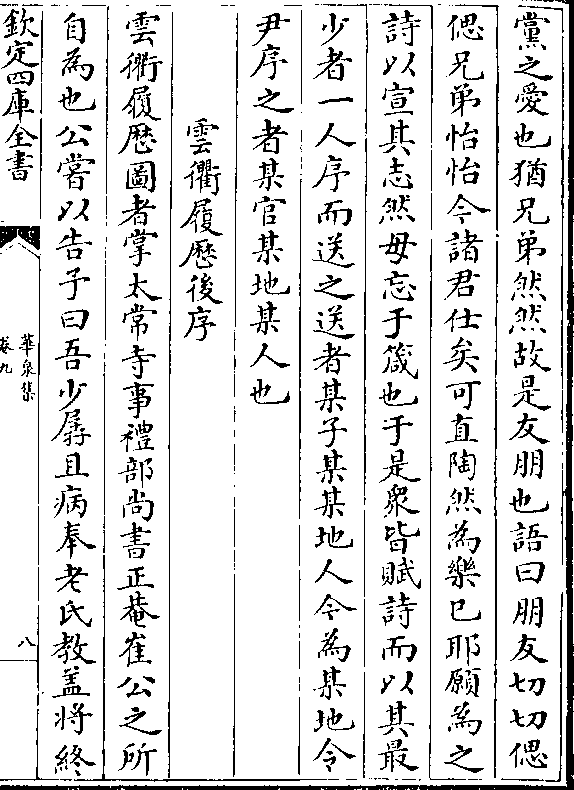 黨之愛也猶兄弟然然故是友朋也語曰朋友切切偲
偲兄弟怡怡今諸君仕矣可直陶然為樂已耶願為之
詩以宣其志然毋忘于箴也于是衆皆賦詩而以其最
少者一人序而送之送者某子某某地人今為某地令
尹序之者某官某地某人也
雲衢履歷後序
雲衢履歷圖者掌太常寺事禮部尚書正菴崔公之所
自為也公嘗以告子曰吾少孱且病奉老氏教蓋將終
欽定四庫全書
華泉集
卷九
八